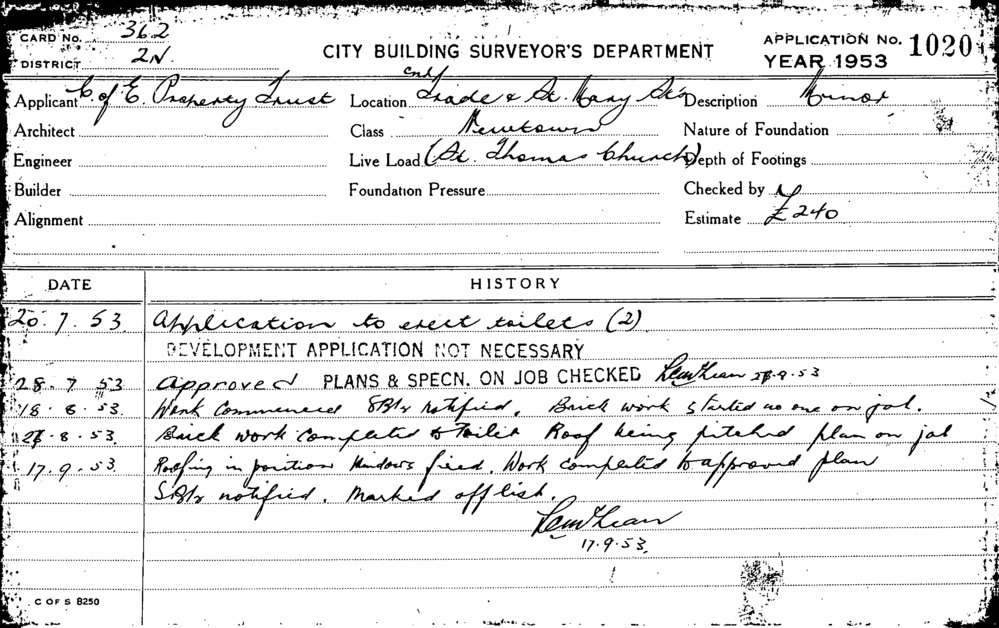 CARD No. 362
DISTRICT 2N.
CITY BUILDING SURVEYOR'S DEPARTMENT
APPLICATION No. 1020
YEAR 1953
Applicant C. of E. Property Trust
Location cnr Trade & St. Mary Sts
Description Minor
Architect
Class Newtown
Nature of Foundation
Engineer
Live Load (St. Thomas Church)
Depth of Footings
Builder
Foundation Pressure
Checked by
Alignment
Estimate £240
DATE HISTORY
20. 7. 53 Application to erect toilets (2)
DEVELOPMENT APPLICATION NOT NECESSARY
28. 7 53 Approved PLANS & SPECN. ON JOB CHECKED
18. 8. 53. Work Commenced notified. Brick work started no one on job.
8. 53. Brick work completed to Toilet Roof being pitched plan on job
17. 9. 53. Roofing in position Windows fixed. Work completed to approved plan
notified. Marked off list.
17. 9. 53.
C OF S 8250